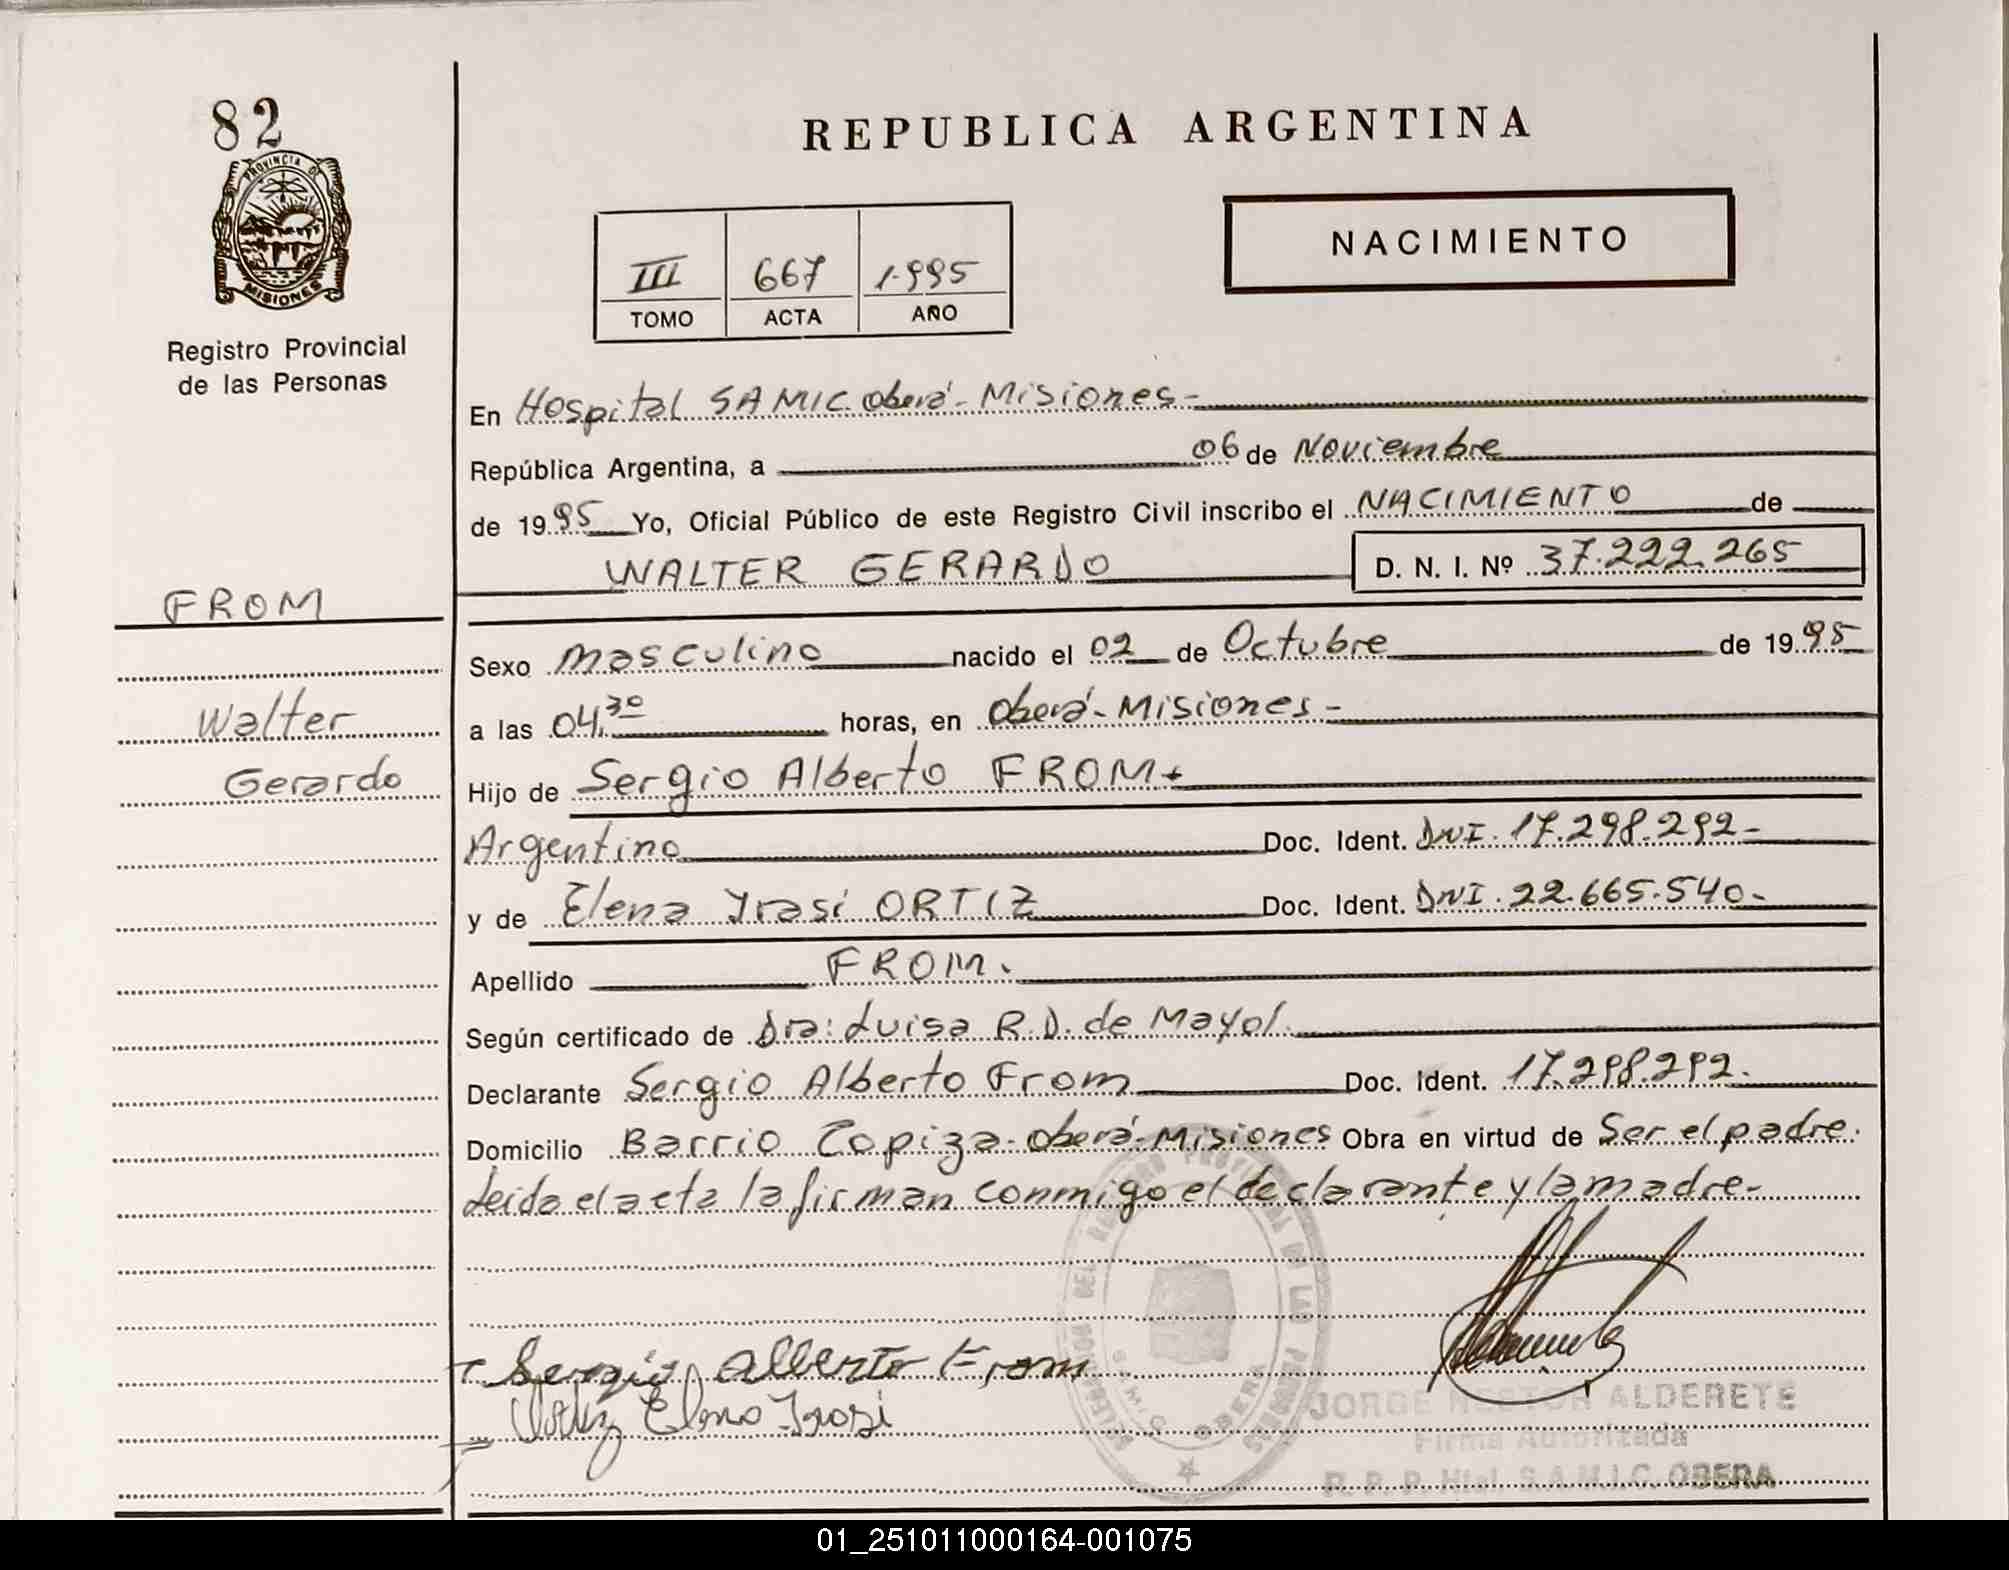 82
PROVINCIA DE
MISIONES
Registro Provincial
de las Personas
FROM
Walter
Gerardo
REPUBLICA ARGENTINA
III 667 1.995
TOMO ACTA AÑO
NACIMIENTO
En Hospital SAMIC. oberá - Misiones -
República Argentina, a 06 de Noviembre
de 1995 Yo, Oficial Público de este Registro Civil inscribo el NACIMIENTO de
WALTER GERARDO D. N. I. Nº 37.222.265
Sexo masculino nacido el 02 de Octubre de 1995
a las 04,30 horas, en oberá - Misiones -
Hijo de Sergio Alberto FROM
Argentino Doc. Ident. DNI. 17.298.292 -
y de Elena Yrasi ORTIZ Doc. Ident. DNI. 22.665.540 -
Apellido FROM.
Según certificado de Dra: Luisa R.D. de Mayol.
Declarante Sergio Alberto From Doc. Ident. 17.298.292.
Domicilio Barrio Copiza - oberá - Misiones Obra en virtud de Ser el padre.
Leida el acta la firman conmigo el declarante y la madre -
Sergio Alberto From
Ortiz Elena Yrasi
REGISTRO PROVINCIAL DE LAS PERSONAS
OBERA
JORGE NESTOR ALDERETE
Firma Autorizada
R. P. P. Htal. S.A.M.I.C. OBERA
01_251011000164-001075